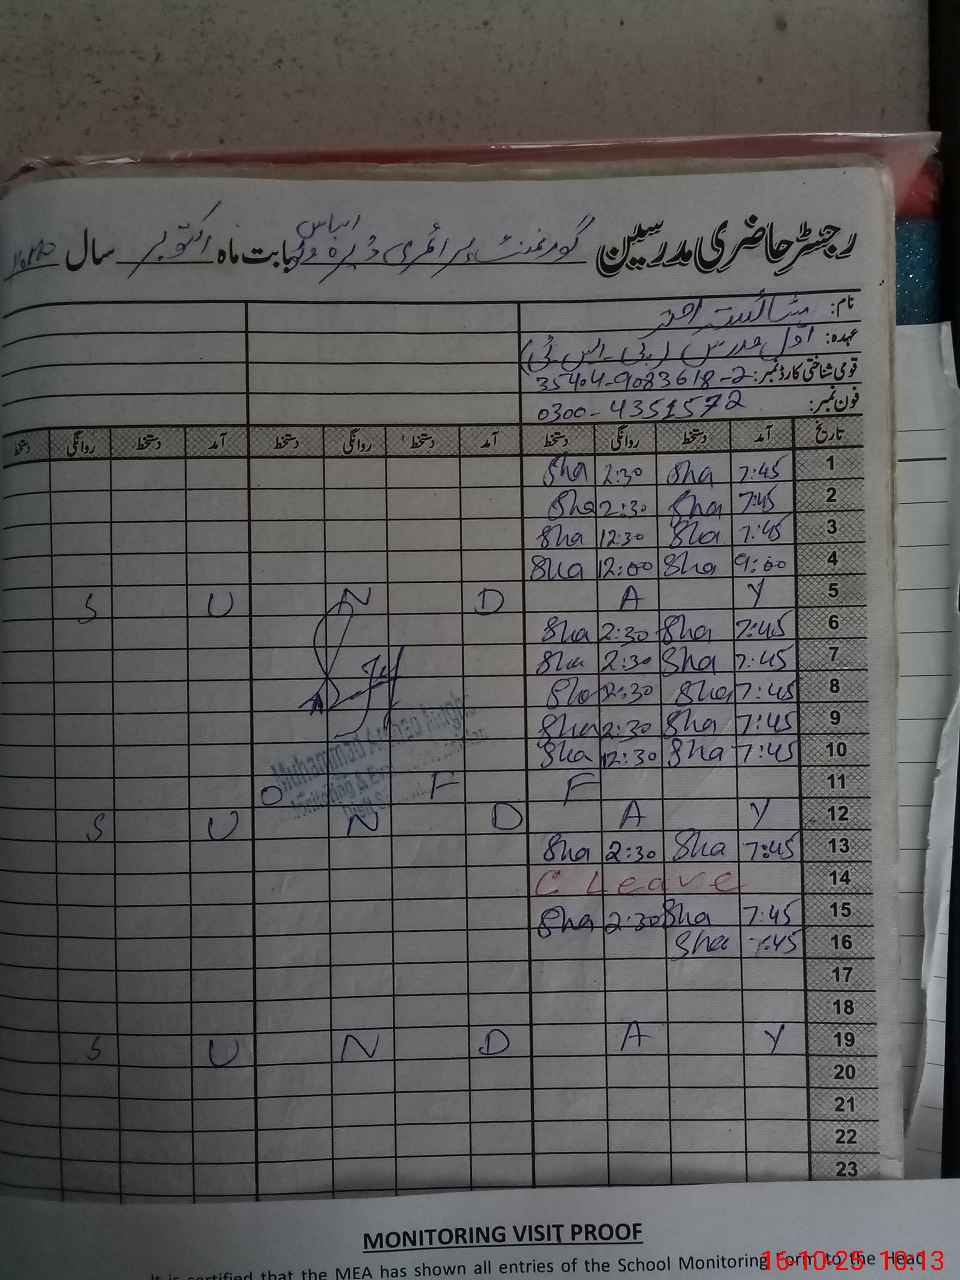 رجسٹر حاضری مدرسین گورنمنٹ پرائمری ڈیرہ بابت ماہ اکتوبر سال
نام: شائستہ
عہدہ: اول مدرس (پی۔ایس۔ٹی)
قومی شناختی کارڈ نمبر: 35404-9083618-2
فون نمبر: 0300-4351572
تاریخ آمد دستخط روانگی دستخط آمد دستخط روانگی دستخط آمد دستخط روانگی دستخط
1 7:45 Sha 2:30 Sha
2 7:45 Sha 2:30 Sha
3 7:45 Sha 12:30 Sha
4 9:00 Sha 12:00 Sha
S U N D A Y 5
6 7:45 Sha 2:30 Sha
7 7:45 Sha 2:30 Sha
8 7:45 Sha 2:30 Sha
9 7:45 Sha 2:30 Sha
10 7:45 Sha 12:30 Sha
O F F 11
S U N D A Y 12
13 7:45 Sha 2:30 Sha
C Leave 14
15 7:45 Sha 2:30 Sha
16 7:45 Sha
17
18
S U N D A Y 19
20
21
22
23
Muhammad
Monitoring &
MONITORING VISIT PROOF
It is certified that the MEA has shown all entries of the School Monitoring Form to the Head
16-10-25 10:13